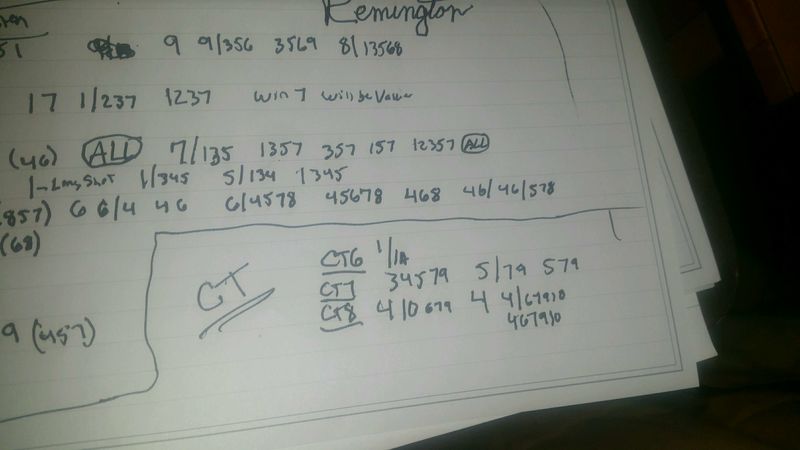 Remington
51 9 9/356 3569 8/13568
17 1/237 1237 Win 7 will be Value
(46) ALL 7/135 1357 357 157 12357 ALL
1-Long Shot 1/345 5/134 1345
857) 6 6/4 46 6/4578 45678 468 46/46/578
(68)
CT
CT6 1/1A
CT7 34579 5/79 579
CT8 4/0679 4 4/67910
467910
9 (457)